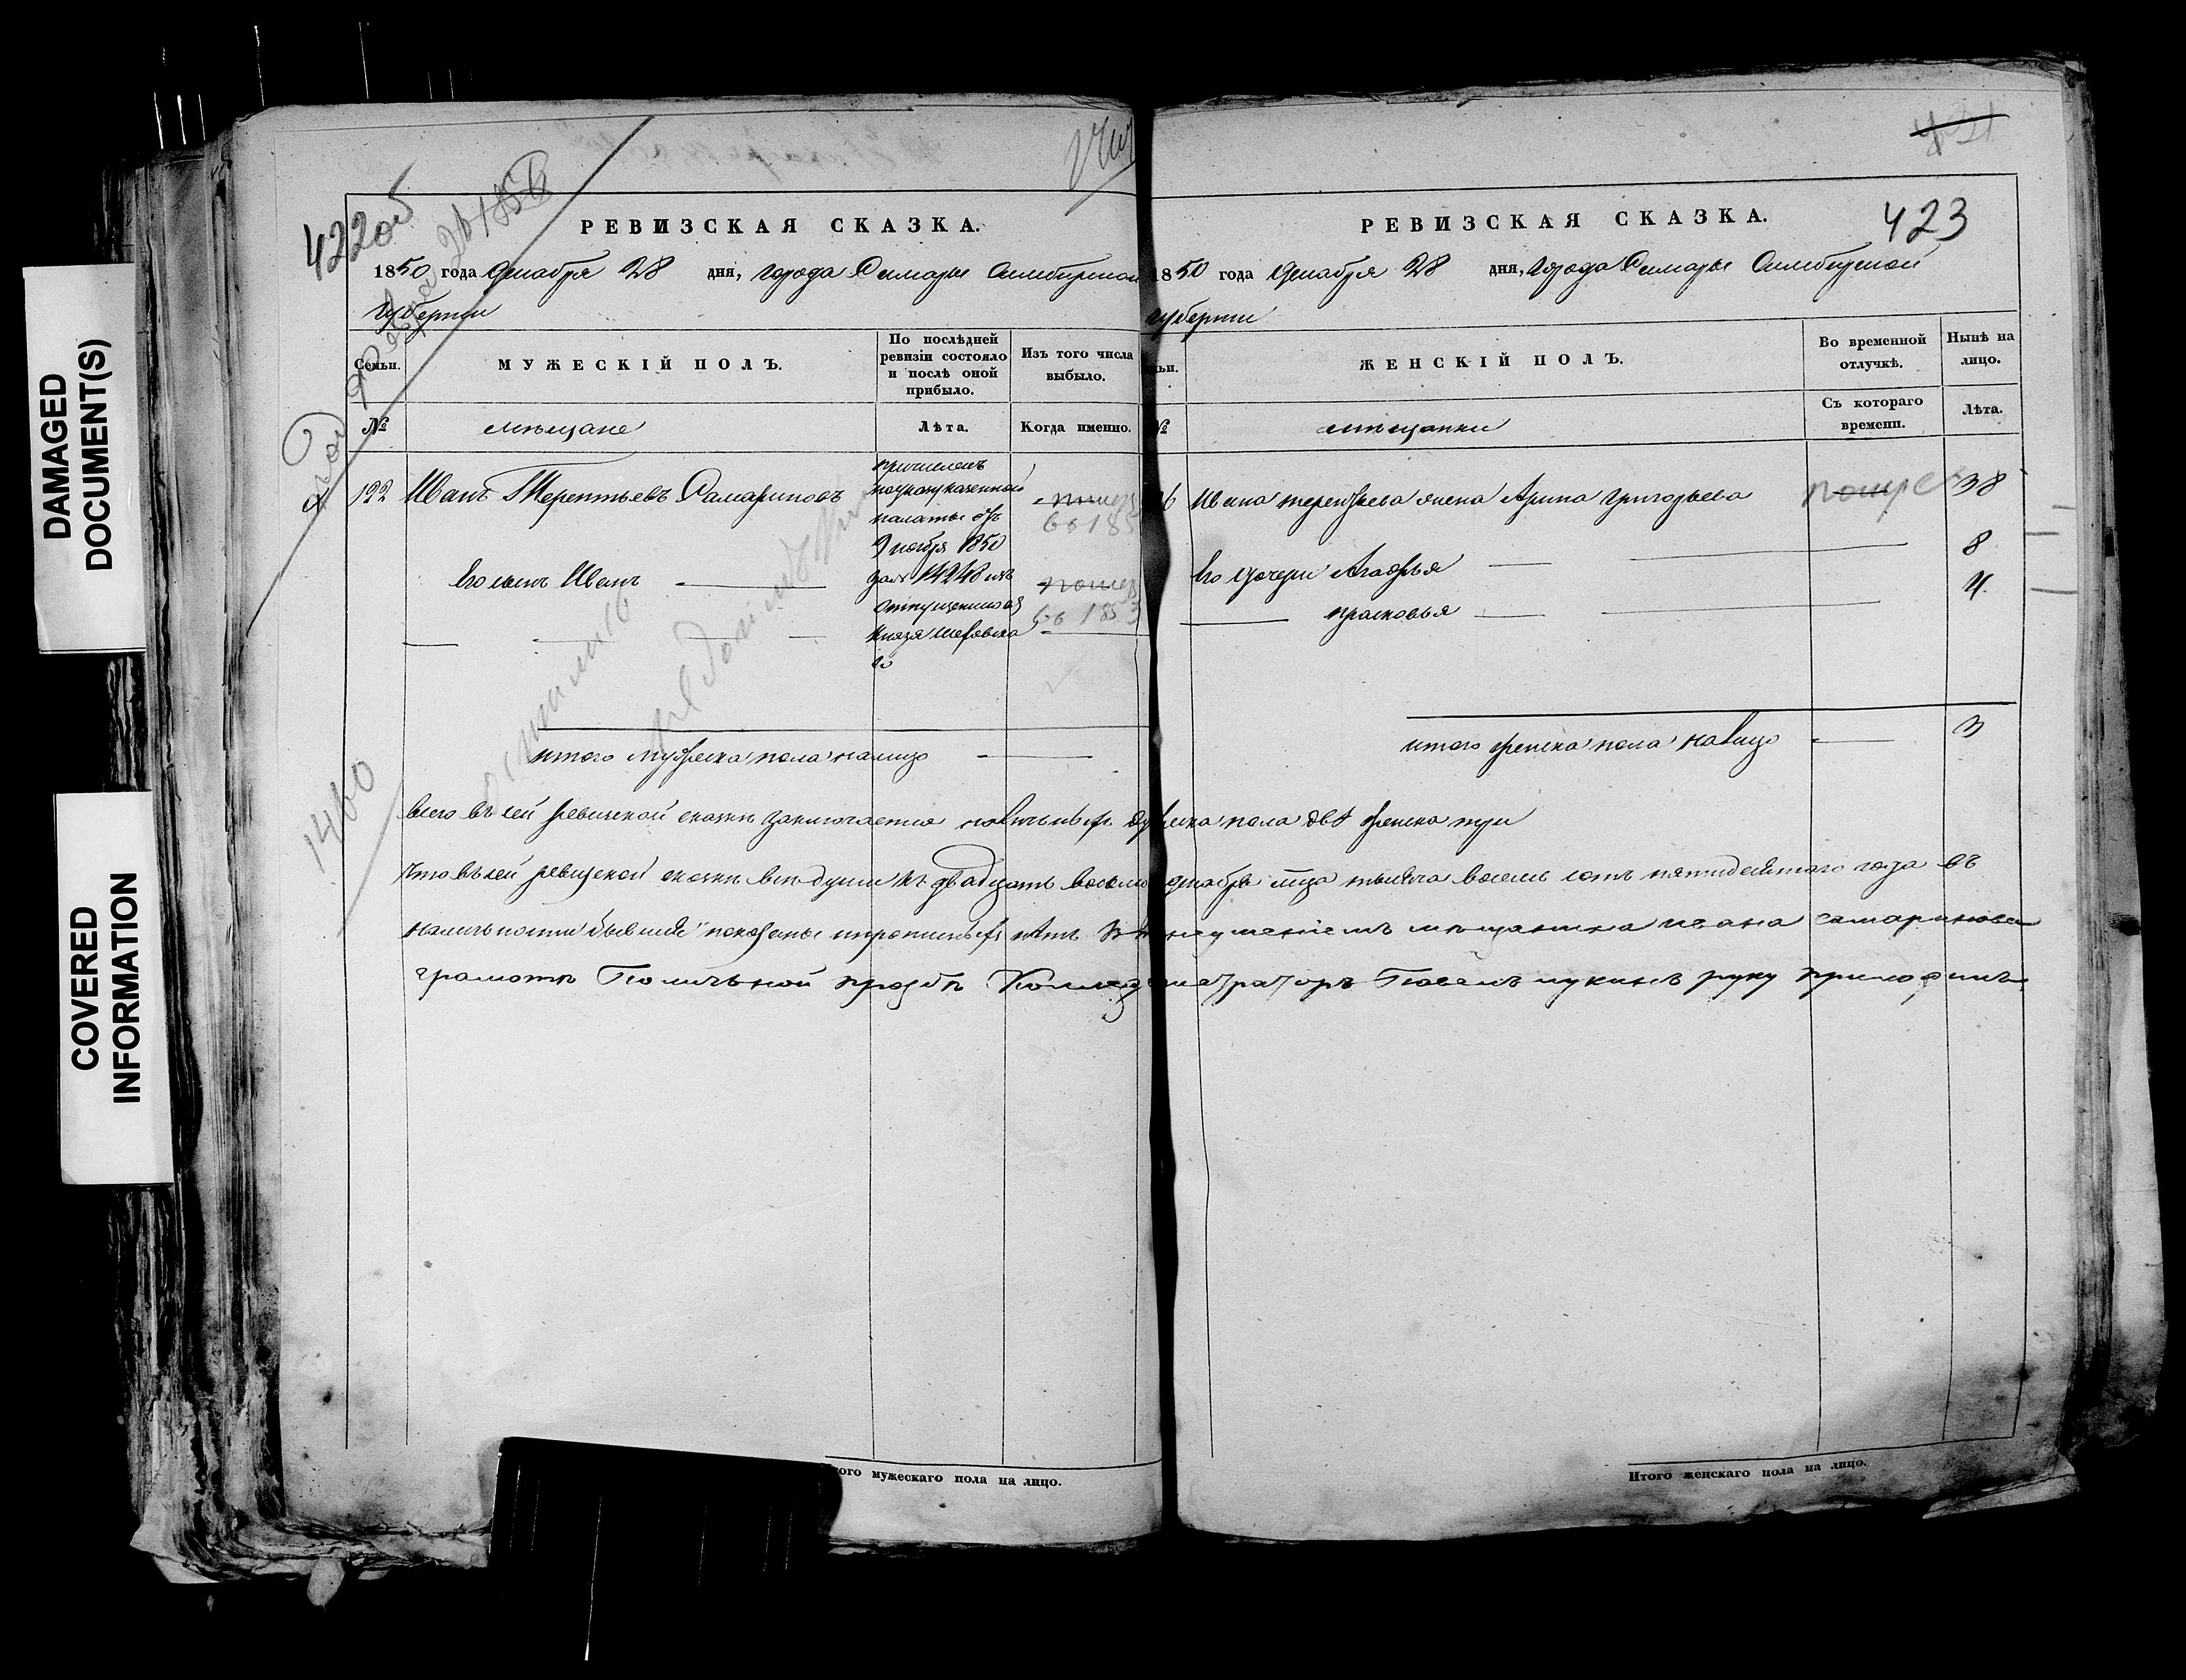 DAMAGED
DOCUMENT(S)
COVERED
INFORMATION
422об
РЕВИЗСКАЯ СКАЗКА.
1850 года декабря 28 дня, города Самары Симбирской
губернии
Семьи.
МУЖЕСКІЙ ПОЛЪ.
По послѣдней
ревизіи состояло
и послѣ оной
прибыло.
Изъ того числа
выбыло.
№
мѣщане
Лѣта.
Когда именно.
122 Иванъ Терентьевъ Самариновъ
причисленъ
по указу казенной
палаты отъ
9 ноября 1850
за № 14248 изъ
отпущенных
князя
во 185
Его сынъ Иванъ
во 1853
итого мужеска пола налицо
1460
423
РЕВИЗСКАЯ СКАЗКА.
1850 года декабря 28 дня, города Самары Симбирской
губернии
ЖЕНСКІЙ ПОЛЪ.
Во временной
отлучкѣ.
Нынѣ на
лицо.
№
мѣщанки
Съ котораго
времени.
Лѣта.
Ивана терентьева жена Арина григорьева 38
Его дочери Агафья 8
прасковья 4
итого женска пола налицо 3
всего въ сей ревизской сказки заключается наличных мужеска пола два женска три
Что въ сей ревизской сказки все души къ двадцать восьмо декабря мца тысяча восемь сотъ пятидесятаго года въ
наличности бывшие показаны и прописных нѣтъ за неумениемъ мѣщанина ивана самаринова
грамоте По личьной прозбе павелъ лукинъ руку приложилъ
того мужескаго пола на лицо.
Итого женскаго пола на лицо.